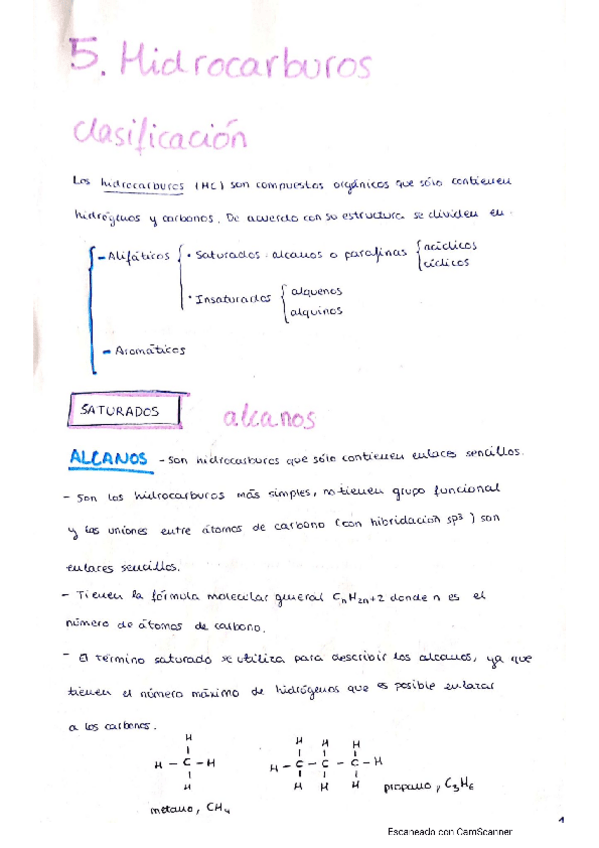 5. Hidrocarburos
clasificación
Los hidrocarburos (HC) son compuestos orgánicos que sólo contienen
hidrógenos y carbonos. De acuerdo con su estructura se dividen en.
- Alifáticos
• Saturados. alcanos o parafinas
acíclicos
cíclicos
• Insaturados
alquenos
alquinos
- Aromáticos
SATURADOS
alcanos
ALCANOS - son hidrocarburos que sólo contienen enlaces sencillos.
- Son los hidrocarburos más simples, no tienen grupo funcional
y las uniones entre átomos de carbono (con hibridación sp³) son
enlaces sencillos.
- Tienen la fórmula molecular general CnH2n+2 donde n es el
número de átomos de carbono.
- El término saturado se utiliza para describir los alcanos, ya que
tienen el número máximo de hidrógenos que es posible enlazar
a los carbonos.
H
H - C - H
H
metano, CH4
H H H
H - C - C - C - H
H H H
propano, C3H6
1
Escaneado con CamScanner